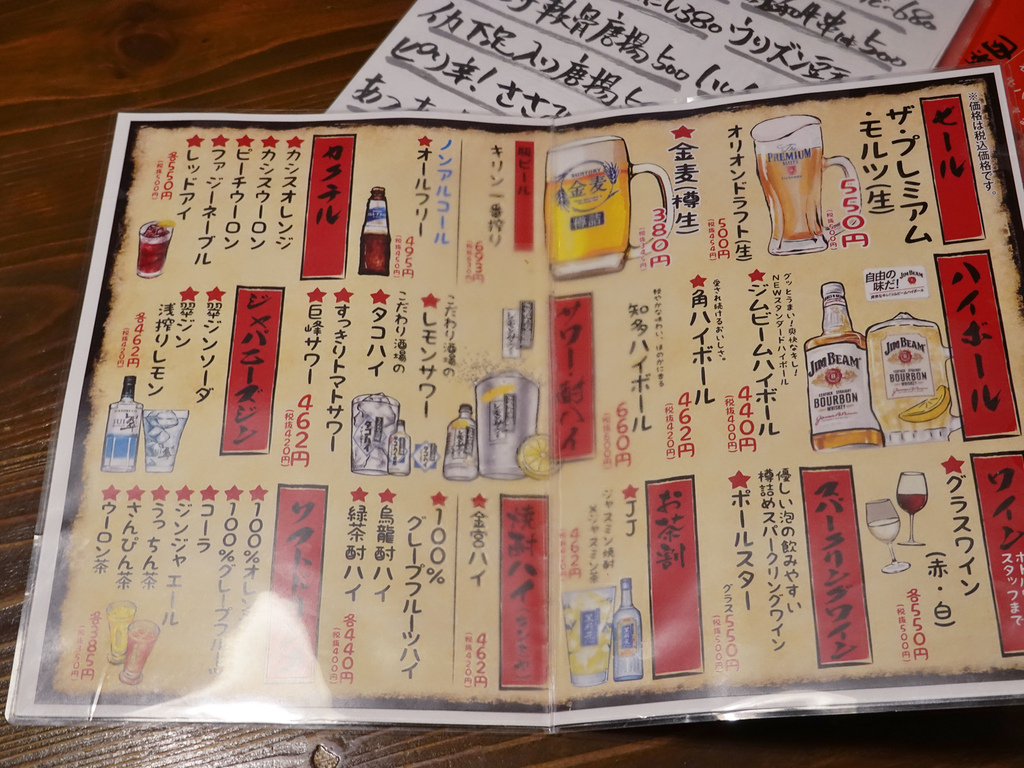 ※価格は税込価格です。
ビール
ザ・プレミアム
・モルツ(生)
550円
オリオンドラフト(生)
500円
(税抜454円)
金麦(樽生)
380円
瓶ビール
キリン一番搾り
693円
ノンアルコール
オールフリー
495円
(税抜450円)
カクテル
カシスオレンジ
カシスウーロン
ピーチウーロン
ファジーネーブル
レッドアイ
各550円
(税抜500円)
ハイボール
自由の
味だ!
JIM BEAM
グッとうまい!爽快なキレ!
NEWスタンダードハイボール
ジムビームハイボール
440円
(税抜400円)
愛され続けるおいしさ。
角ハイボール
462円
(税抜420円)
軽やかな味わい、ほのかに香る
知多ハイボール
660円
(税抜600円)
サワー・酎ハイ
こだわり酒場の
レモンサワー
こだわり酒場の
タコハイ
すっきりトマトサワー
巨峰サワー
462円
(税抜420円)
ジャパニーズジン
翠ジンソーダ
翠ジン
浅搾りレモン
各462円
(税抜420円)
ワイン
スタッフまで
グラスワイン
(赤・白)
各550円
(税抜500円)
スパークリングワイン
優しい泡の飲みやすい
樽詰めスパークリングワイン
ポールスター
グラス550円
(税抜500円)
お茶割
JJ
ジャスミン焼酎
×ジャスミン茶
462円
(税抜420円)
焼酎ハイ
金宮ハイ
462円
(税抜420円)
100%
グレープフルーツハイ
烏龍酎ハイ
緑茶酎ハイ
各440円
(税抜400円)
ソフトドリンク
100%オレンジ
100%グレープフルーツ
コーラ
ジンジャエール
うっちん茶
さんぴん茶
ウーロン茶
各385円
(税抜350円)
THE PREMIUM
MALT'S
SUNTORY
金麦
樽詰
JIM BEAM
BOURBON
WHISKEY
JIM BEAM
BOURBON
WHISKEY
軟骨唐揚500
イカ下足入り唐揚
ウリズン豆
ピリ辛!ささ